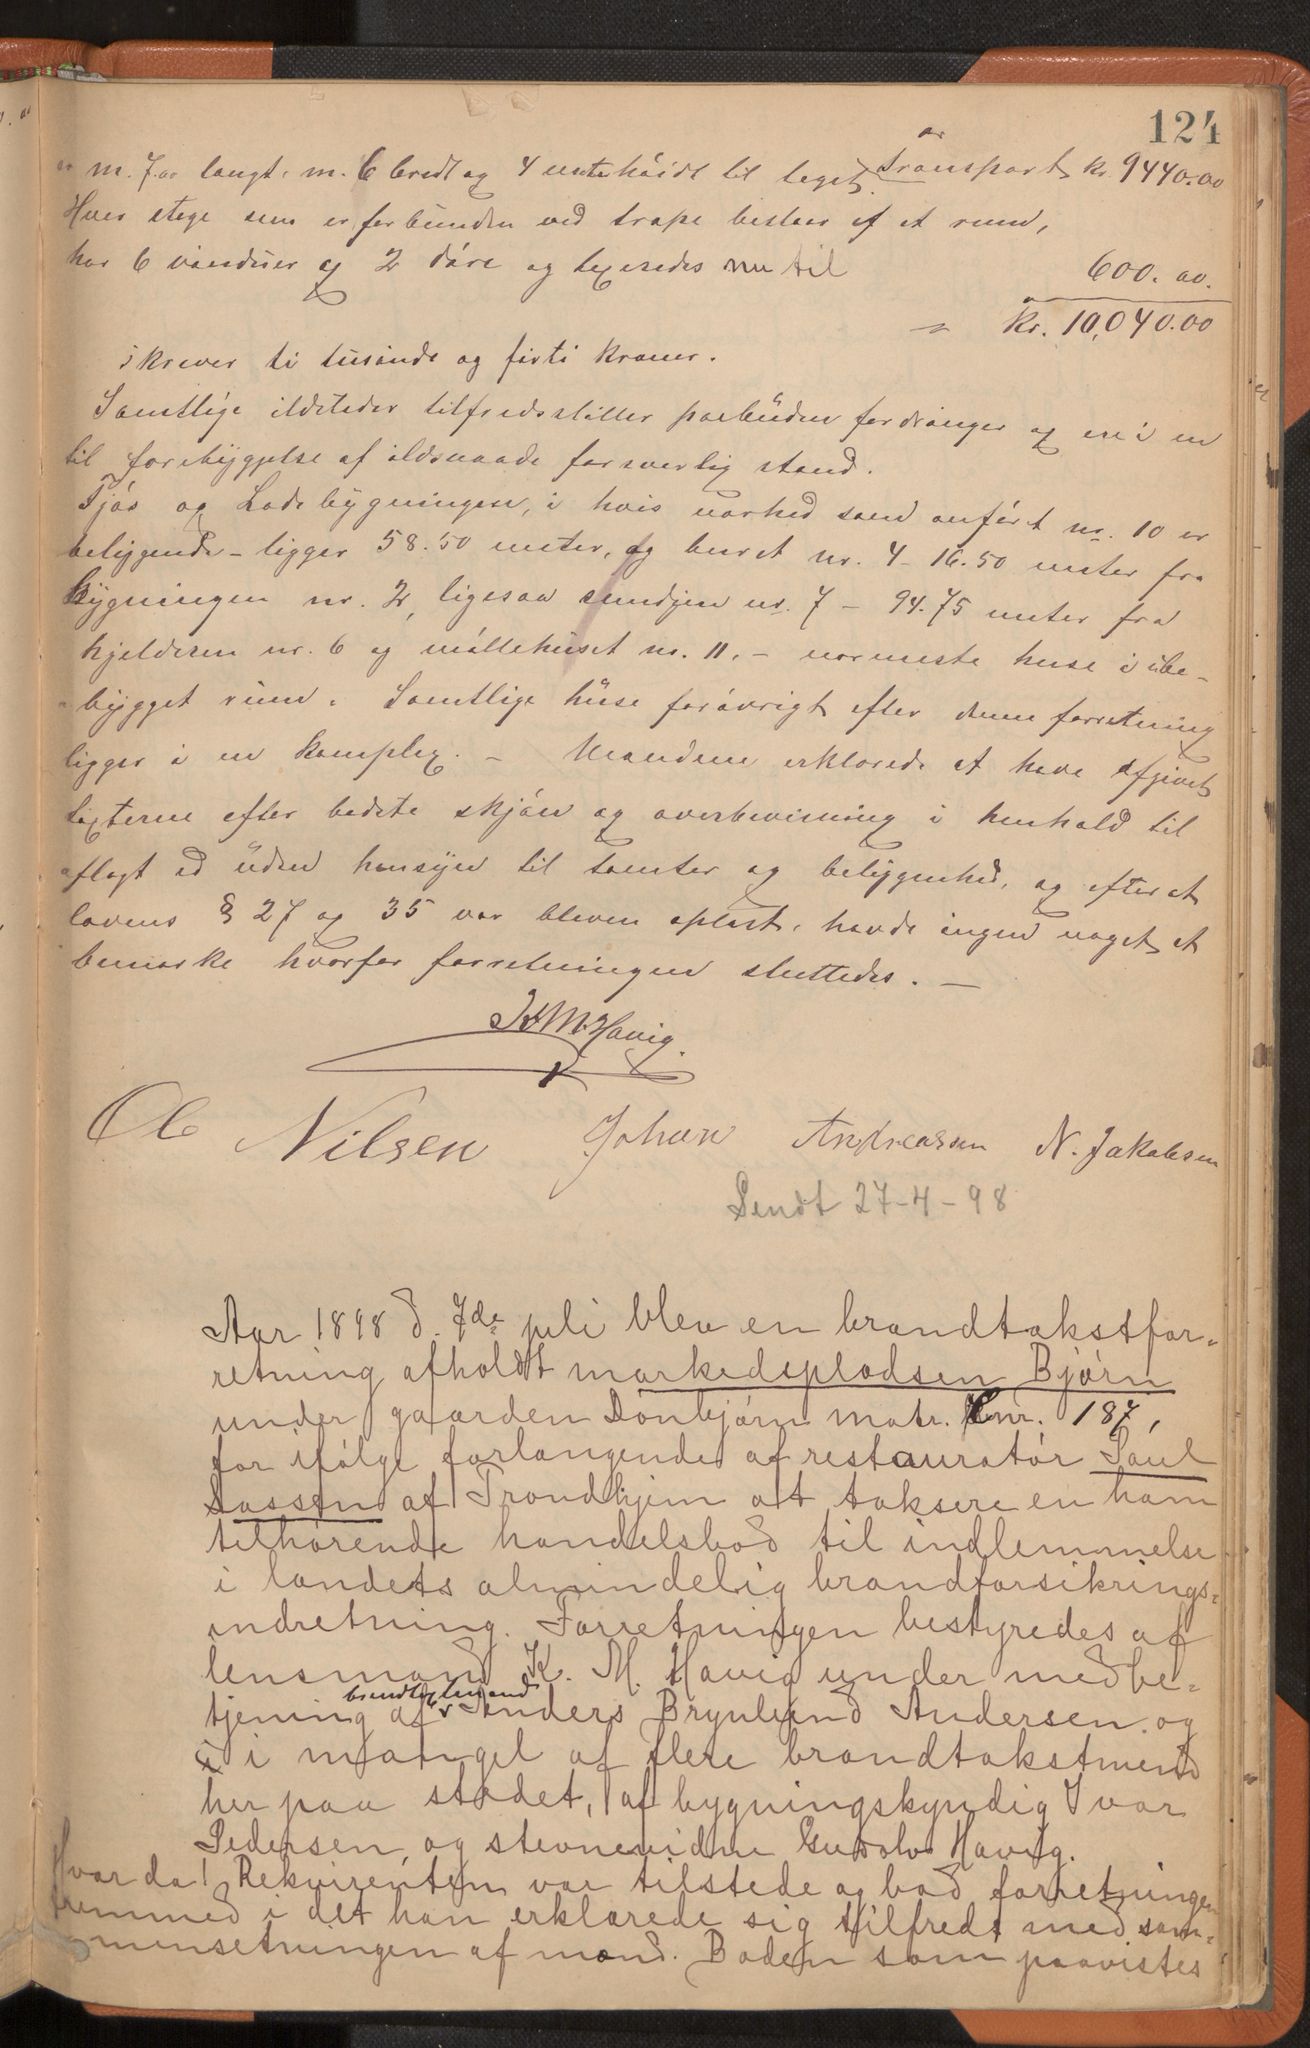 124
er m. 7.00 langt, m. 6 bredt og 4 meter høidt til taget. Transport kr. 9440.00
Hver etage som er forbunden ved trape bestaar af et rum,
har 6 vinduer og 2 døre og taxeredes nu til 600.00.
Kr. 10,040.00
skriver ti tusinde og firti kroner.
Samtlige ildsteder tilfredsstiller paabuden fordringer og ere i en
til forebyggelse af ildsvaade forsvarlig stand.
Fjøs og Ladebygningen, i hvis nærhed som anført nr. 10 er
beliggende - ligger 58.50 meter, og buret nr. 4 - 16.50 meter fra
bygningen nr. 2, ligesaa smedjen nr. 7 - 94.75 meter fra
hjelderen nr. 6 og møllehuset nr. 11. - nærmeste huse i ube-
bygget rum. Samtlige huse forøvrigt efter denne forretning
ligger i en komplex. - Mændene erklærede at have afgivet
taxterne efter bedste skjøn og overbevisning i henhold til
aflagt ed uden hensyn til tomter og beliggenhed, og efter at
lovens § 27 og 35 var bleven oplæst, havde ingen noget at
bemærke hvorfor forretningen sluttedes. -
K M. Havig.
Ole Nilsen Johan Andreassen N. Jakobsen
Sendt 27-4-98
Aar 1898 d. 7de juli blev en brandtakstfor-
retning afholdt markedspladsen Bjørn
under gaarden Dønbjørn matr. Lnr. 187,
for ifølge forlangende af restauratør Paul
Sassen af Trondhjem at taksere en ham
tilhørende handelsbod til indlemmelse
i landets almindelig brandforsikrings-
indretning. Forretningen bestyredes af
lensmand K. M. Havig under medbe-
tjening af brandtaxtmand Anders Brynlund Andersen og
i mangel af flere brandtakstmend
her paa stedet, af bygningskyndig Ivar
Pedersen, og stevnevidne Gudolv Havig.
Hvor da! Rekvirenten var tilstede og bad forretningen
fremmed i det han erklærede sig tilfreds med sam-
mensetningen af mænd. Boden som paavistes